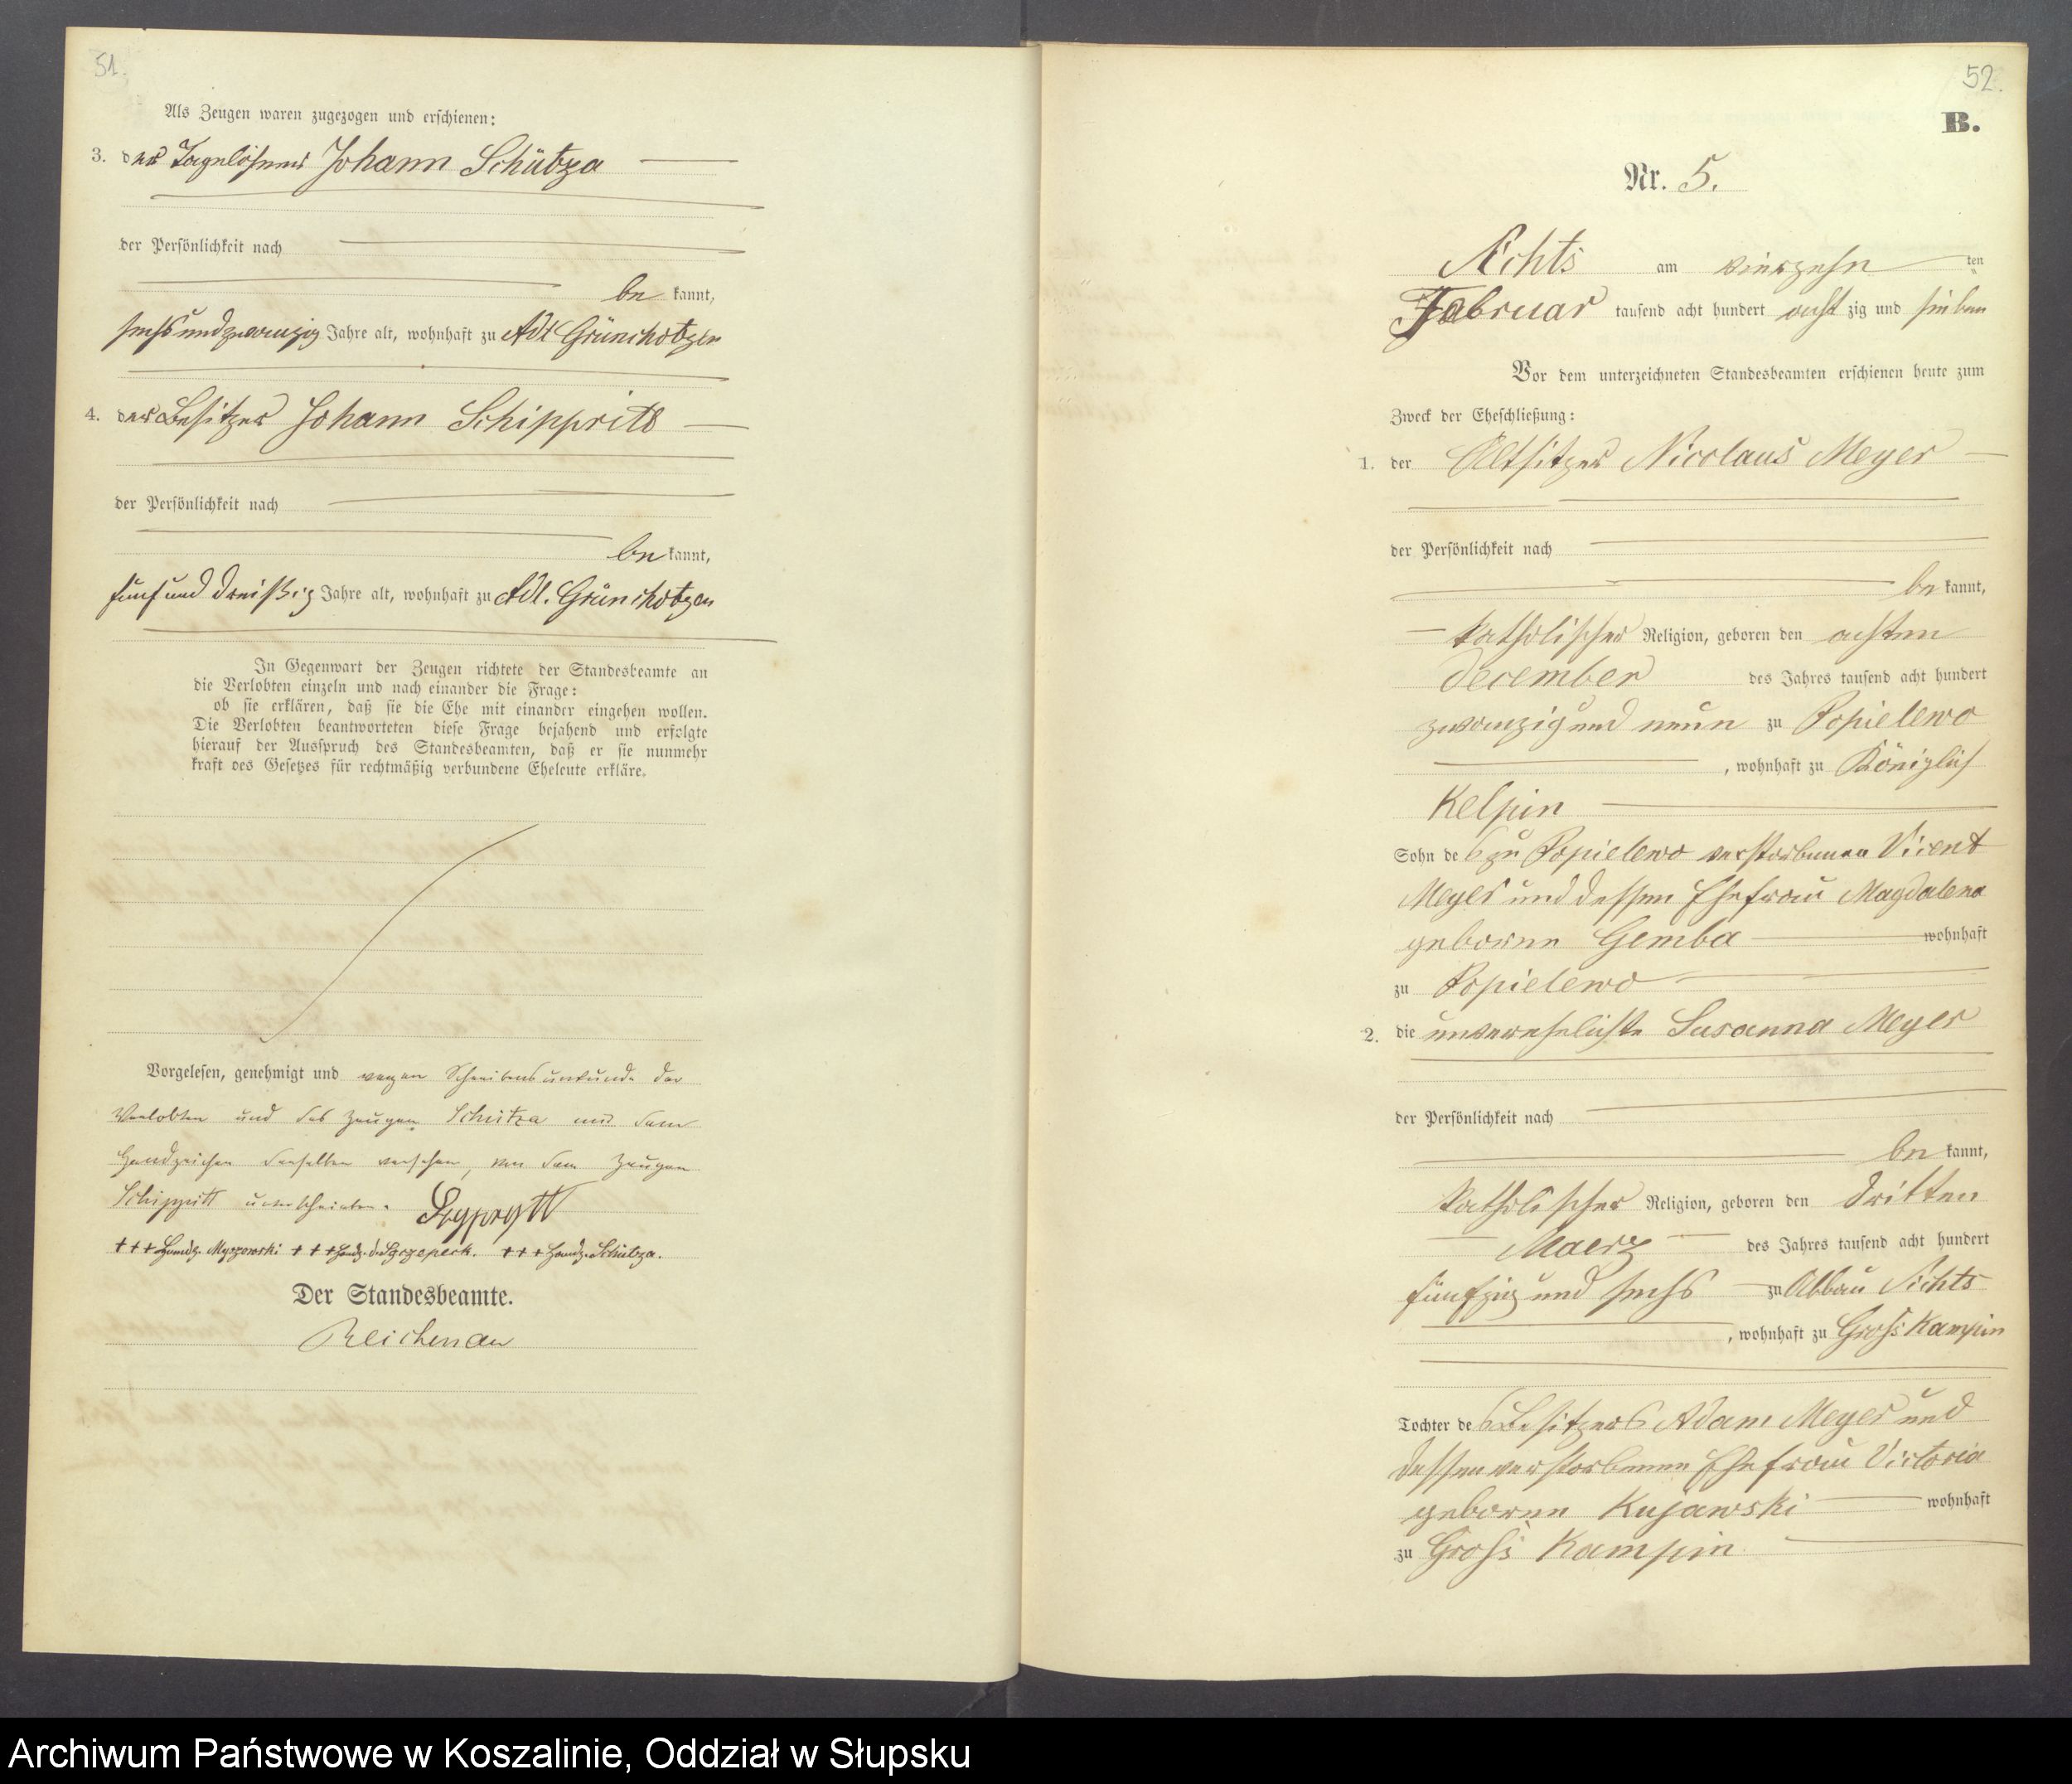 51.
Als Zeugen waren zugezogen und erschienen:
3. der Tagelöhner Johann Schütza
der Persönlichkeit nach
be kannt,
sechsundzwanzig Jahre alt, wohnhaft zu Adl Grünchotzen
4. der Besitzer Johann Schippritt
der Persönlichkeit nach
be kannt,
fünfunddreißig Jahre alt, wohnhaft zu Adl. Grünchotzen
In Gegenwart der Zeugen richtete der Standesbeamte an
die Verlobten einzeln und nach einander die Frage:
ob sie erklären, daß sie die Ehe mit einander eingehen wollen.
Die Verlobten beantworteten diese Frage bejahend und erfolgte
hierauf der Ausspruch des Standesbeamten, daß er sie nunmehr
kraft des Gesetzes für rechtmäßig verbundene Eheleute erkläre.
Vorgelesen, genehmigt und wegen Schreibensunkunde der
Verlobten und des Zeugen Schütza mit dem
Handzeichen derselben versehen, von dem Zeugen
Schippritt unterschrieben.
+++ Handz. Myszewski +++ Handz. d. +++ Handz. Schütza.
Der Standesbeamte.
Reichenau
52.
B.
Nr. 5.
Sichts am vierzehn ten
Februar tausend acht hundert acht zig und sieben
Vor dem unterzeichneten Standesbeamten erschienen heute zum
Zweck der Eheschließung:
1. der Altsitzer Nicolaus Meyer
der Persönlichkeit nach
be kannt,
katholischer Religion, geboren den achten
December des Jahres tausend acht hundert
zwanzig und neun zu Popielewo
, wohnhaft zu Königlich
Kelpin
Sohn des zu Popielewo verstorbenen Vicent
Meyer und dessen Ehefrau Magdalena
geborene Gemba wohnhaft
zu Popielewo
2. die unverehelichte Susanna Meyer
der Persönlichkeit nach
be kannt,
katholischer Religion, geboren den dritten
Maerz des Jahres tausend acht hundert
fünfzig und sechs zu Abbau Sichts
, wohnhaft zu Groß Kampin
Tochter des Besitzers Adam Meyer und
dessen verstorbenen Ehefrau Victoria
geborene Kujawski wohnhaft
zu Groß Kampin
Archiwum Państwowe w Koszalinie, Oddział w Słupsku